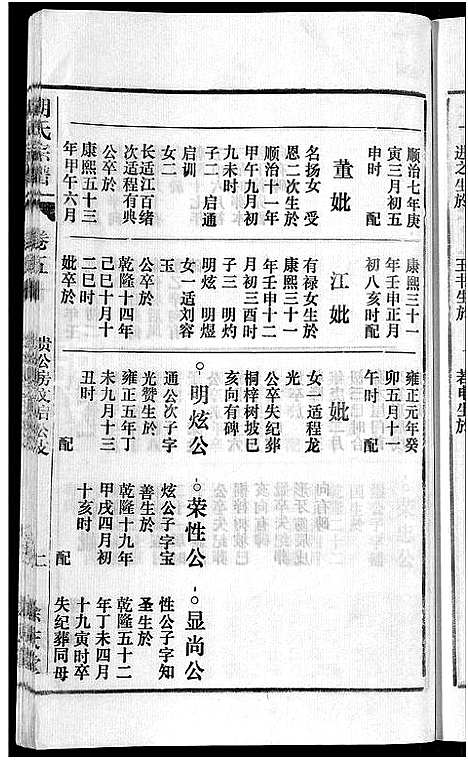 顺治七年庚
寅三月初五
申时 配
董妣
名扬女 受
恩二次生於
顺治十一年
甲午九月初
九未时
子二 启通
启训
女二
长适江百绪
次适程有典
公卒於
康熙五十三
年甲午六月
康熙三十一
年壬申正月
初八亥时配
江妣
有禄女生於
康熙三十一
年壬申十二
月初三酉时
子三 明灼
明炫 明煜
女一适刘容
玉
公卒於
乾隆十四年
己巳十月十
二巳时
妣卒於
雍正元年癸
卯五月十一
午时 配
妣
女一适程龙
光
公卒失纪葬
桐梓树坡巳
亥向有碑
明炫公
通公次子字
光赞生於
雍正五年丁
未九月十三
丑时 配
荣性公
炫公子字宝
善生於
乾隆十九年
甲戌四月初
十亥时 配
显尚公
性公子字知
圣生於
乾隆五十二
年丁未四月
十九寅时卒
失纪葬同母
胡氏宗谱
卷五